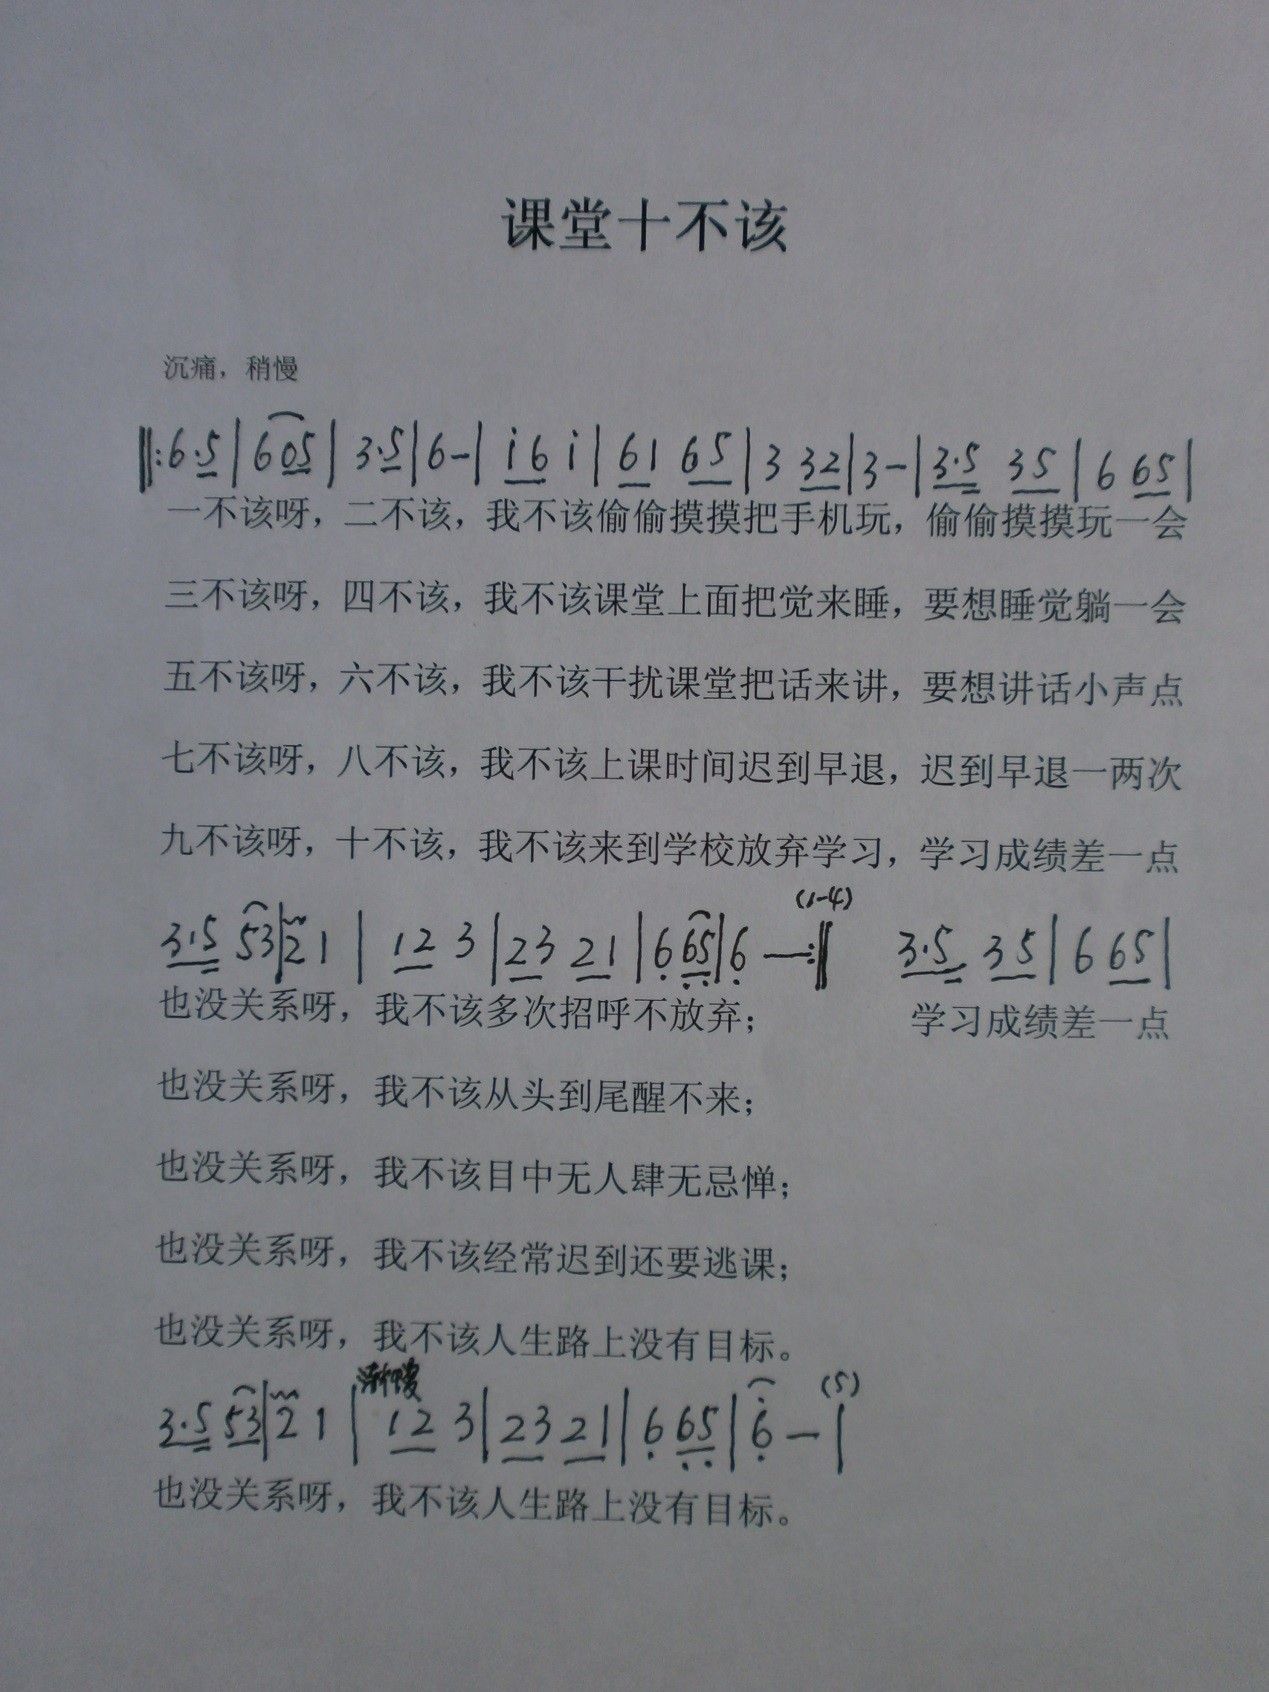 课堂十不该
沉痛，稍慢
‖:6·5|605|3·5|6-|i6 i|61 65|3 32|3-|3·5 35|6 65|
一不该呀，二不该，我不该偷偷摸摸把手机玩，偷偷摸摸玩一会
三不该呀，四不该，我不该课堂上面把觉来睡，要想睡觉躺一会
五不该呀，六不该，我不该干扰课堂把话来讲，要想讲话小声点
七不该呀，八不该，我不该上课时间迟到早退，迟到早退一两次
九不该呀，十不该，我不该来到学校放弃学习，学习成绩差一点
(1-4)
3·5 53|2 1|12 3|23 21|6 65|6 —:‖ 3·5 35|6 65|
也没关系呀，我不该多次招呼不放弃； 学习成绩差一点
也没关系呀，我不该从头到尾醒不来；
也没关系呀，我不该目中无人肆无忌惮；
也没关系呀，我不该经常迟到还要逃课；
也没关系呀，我不该人生路上没有目标。
渐慢 (5)
3·5 53|2 1|12 3|23 21|6 65|6 —|
也没关系呀，我不该人生路上没有目标。